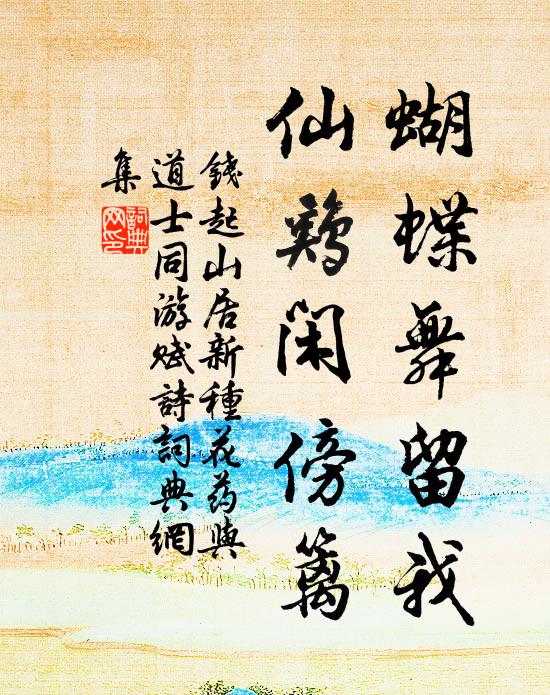 蝴蝶舞留我
仙鸡闲傍篱
錢起山居新種花药與
道士同游赋詩詞典網
集
詞典
网印